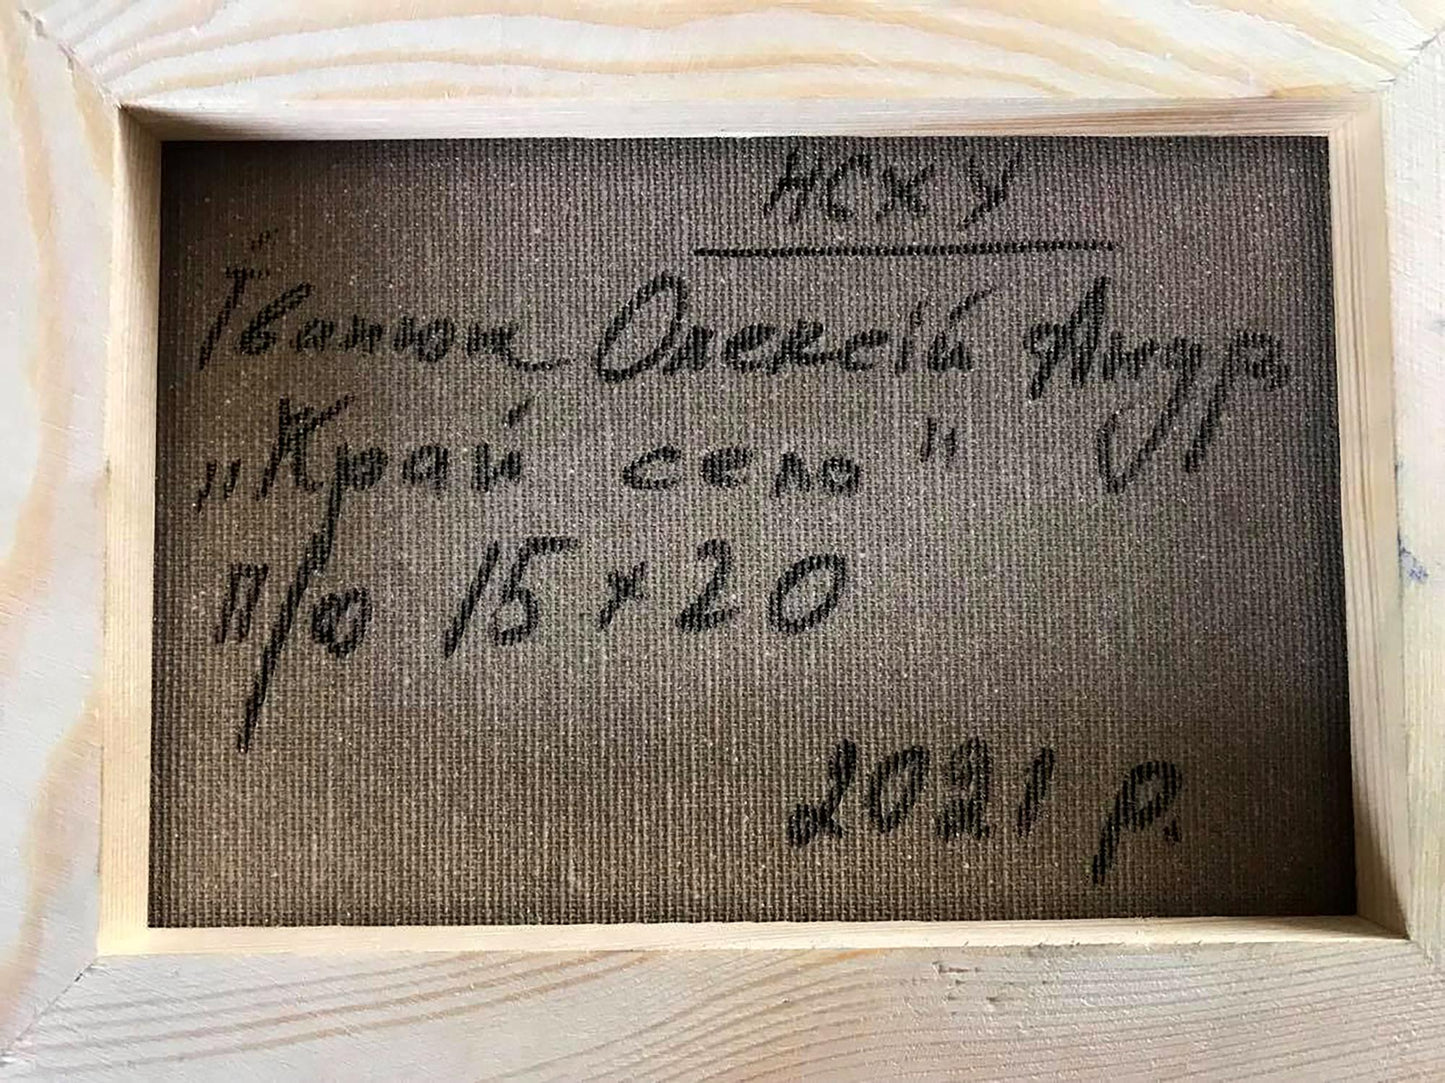 НСХУ
Іванюк Олексій
„Край село"
п/о 15 х 20
2021 р.